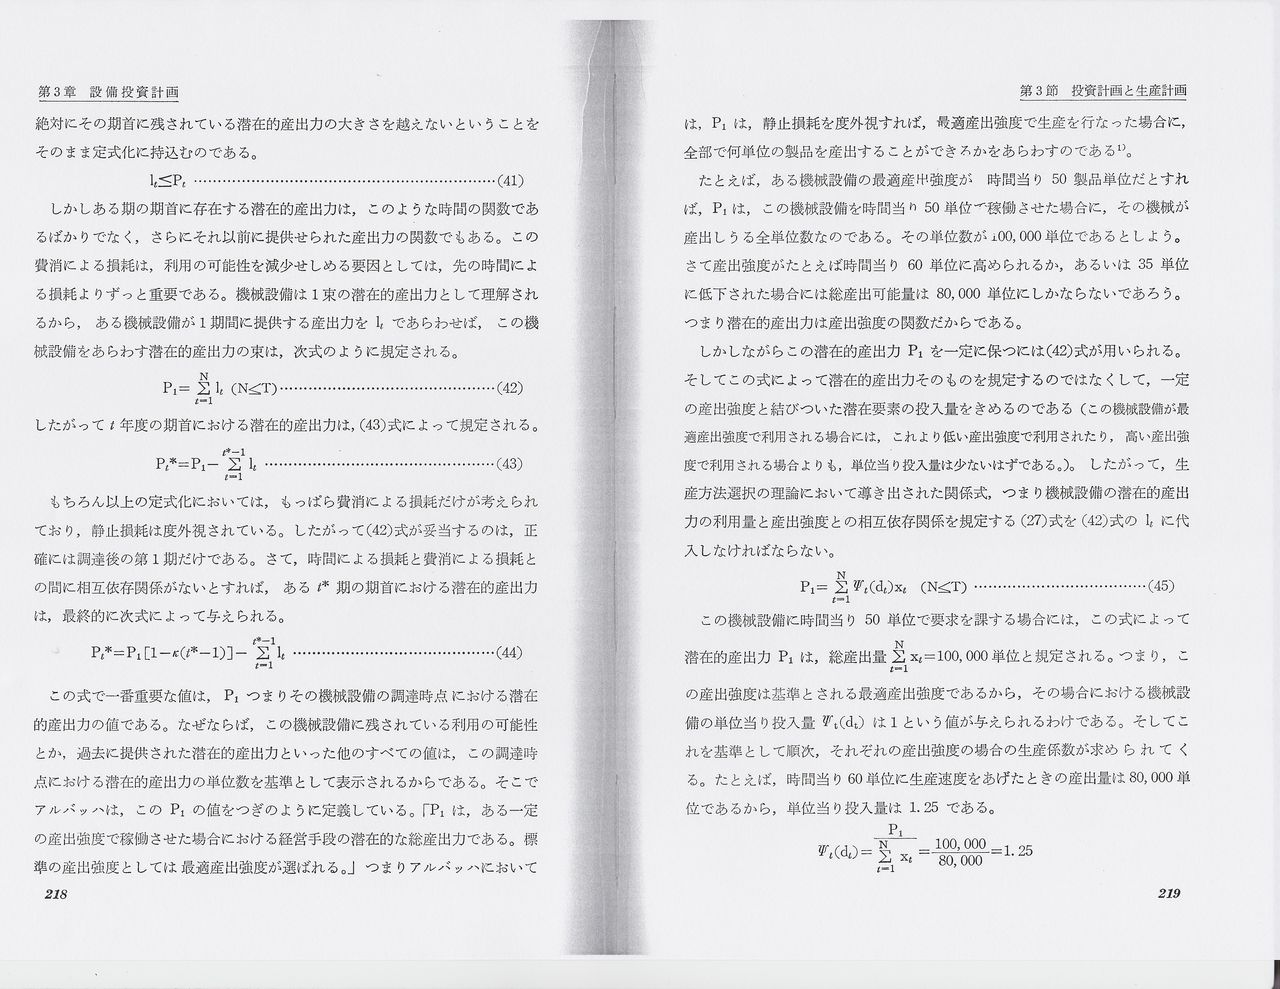 第3章　設備投資計画
絶対にその期首に残されている潜在的産出力の大きさを越えないということを
そのまま定式化に持込むのである。
lt≦Pt ………………………………………………………(41)
しかしある期の期首に存在する潜在的産出力は，このような時間の関数であ
るばかりでなく，さらにそれ以前に提供せられた産出力の関数でもある。この
費消による損耗は，利用の可能性を減少せしめる要因としては，先の時間によ
る損耗よりずっと重要である。機械設備は1束の潜在的産出力として理解され
るから， ある機械設備が1期間に提供する産出力を lt であらわせば， この機
械設備をあらわす潜在的産出力の束は，次式のように規定される。
P1= N∑t=1 lt (N≦T)………………………………………(42)
したがって t 年度の期首における潜在的産出力は，(43)式によって規定される。
Pt*=P1− t*−1∑t=1 lt …………………………………………(43)
もちろん以上の定式化においては，もっぱら費消による損耗だけが考えられ
ており，静止損耗は度外視されている。したがって(42)式が妥当するのは，正
確には調達後の第1期だけである。さて，時間による損耗と費消による損耗と
の間に相互依存関係がないとすれば， ある t* 期の期首における潜在的産出力
は，最終的に次式によって与えられる。
Pt*=P1[1−κ(t*−1)]− t*−1∑t=1 lt ……………………………………(44)
この式で一番重要な値は， P1 つまりその機械設備の調達時点における潜在
的産出力の値である。なぜならば，この機械設備に残されている利用の可能性
とか，過去に提供された潜在的産出力といった他のすべての値は，この調達時
点における潜在的産出力の単位数を基準として表示されるからである。そこで
アルバッハは，この P1 の値をつぎのように定義している。「P1 は，ある一定
の産出強度で稼働させた場合における経営手段の潜在的な総産出力である。標
準の産出強度としては最適産出強度が選ばれる。」つまりアルバッハにおいて
218
第3節　投資計画と生産計画
は，P1 は，静止損耗を度外視すれば，最適産出強度で生産を行なった場合に，
全部で何単位の製品を産出することができるかをあらわすのである1)。
たとえば，ある機械設備の最適産出強度が 時間当り 50 製品単位だとすれ
ば，P1 は，この機械設備を時間当り 50 単位で稼働させた場合に，その機械が
産出しうる全単位数なのである。その単位数が 100,000 単位であるとしよう。
さて産出強度がたとえば時間当り 60 単位に高められるか，あるいは 35 単位
に低下された場合には総産出可能量は 80,000 単位にしかならないであろう。
つまり潜在的産出力は産出強度の関数だからである。
しかしながらこの潜在的産出力 P1 を一定に保つには(42)式が用いられる。
そしてこの式によって潜在的産出力そのものを規定するのではなくして，一定
の産出強度と結びついた潜在要素の投入量をきめるのである（この機械設備が最
適産出強度で利用される場合には，これより低い産出強度で利用されたり，高い産出強
度で利用される場合よりも，単位当り投入量は少ないはずである。）。 したがって，生
産方法選択の理論において導き出された関係式，つまり機械設備の潜在的産出
力の利用量と産出強度との相互依存関係を規定する (27)式を (42)式の lt に代
入しなければならない。
P1= N∑t=1 Ψt(dt)xt (N≦T) ………………………………(45)
この機械設備に時間当り 50 単位で要求を課する場合には，この式によって
潜在的産出力 P1 は，総産出量 N∑t=1 xt=100,000単位と規定される。つまり，こ
の産出強度は基準とされる最適産出強度であるから，その場合における機械設
備の単位当り投入量 Ψt(dt) は1という値が与えられるわけである。そしてこ
れを基準として順次，それぞれの産出強度の場合の生産係数が求められてく
る。たとえば，時間当り60単位に生産速度をあげたときの産出量は80,000単
位であるから，単位当り投入量は 1.25 である。
Ψt(dt)= P1 / N∑t=1 xt = 100,000 / 80,000 =1.25
219